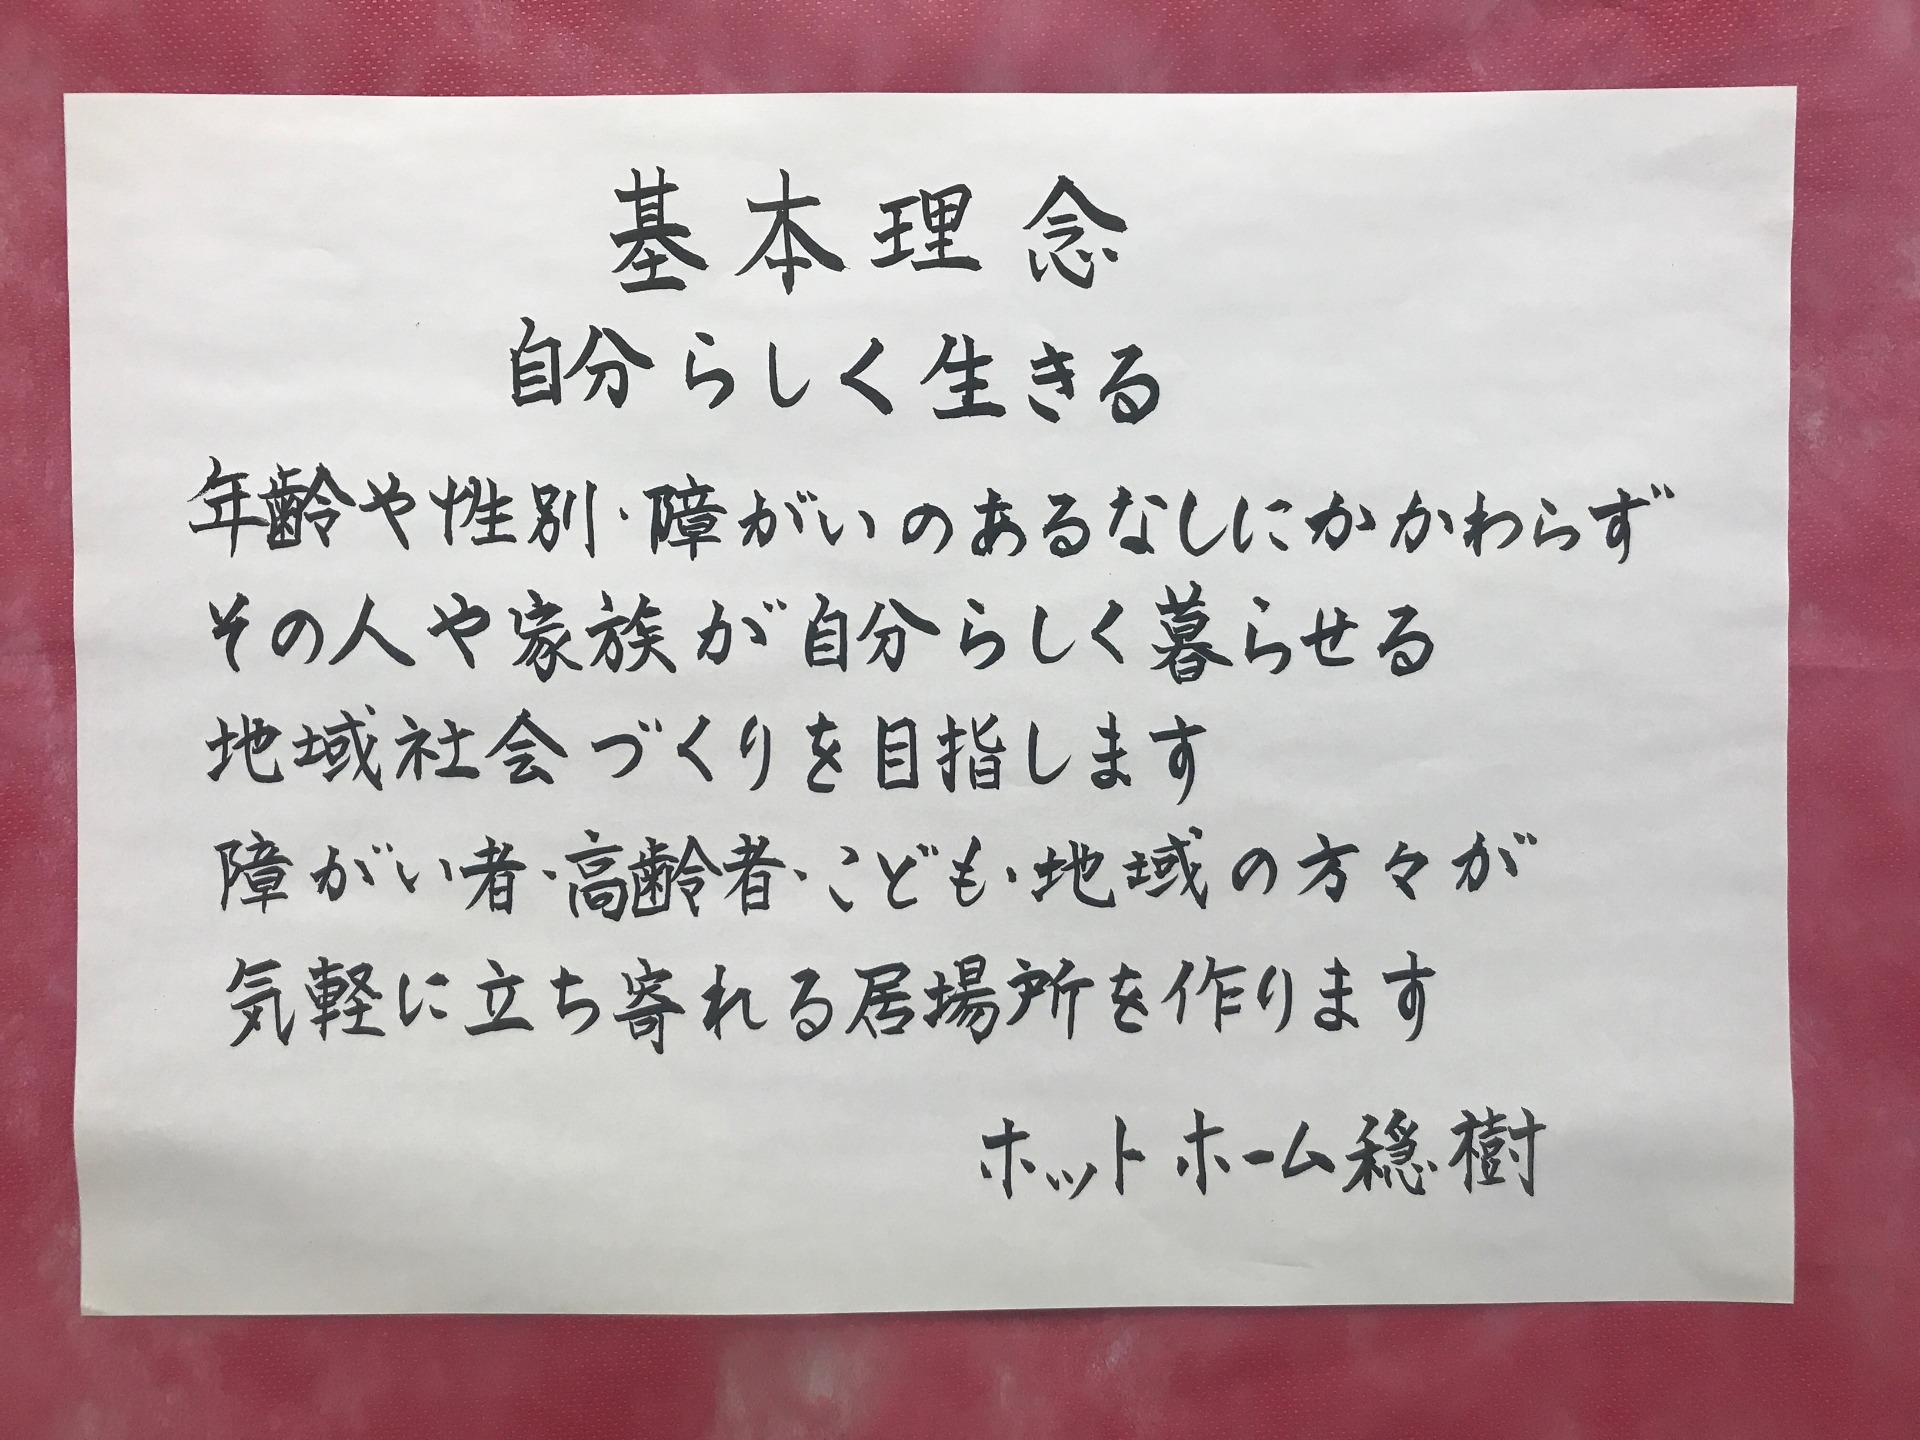 基本理念
自分らしく生きる
年齢や性別・障がいのあるなしにかかわらず
その人や家族が自分らしく暮らせる
地域社会づくりを目指します
障がい者・高齢者・こども・地域の方々が
気軽に立ち寄れる居場所を作ります
ホットホーム穏樹